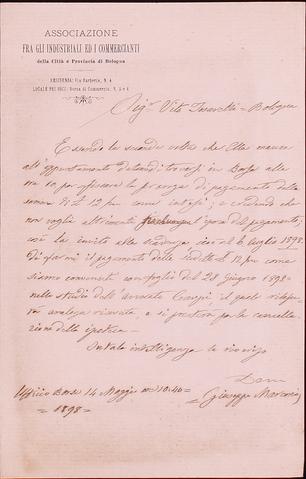 ASSOCIAZIONE
FRA GLI INDUSTRIALI ED I COMMERCIANTI
della Città e Provincia di Bologna
RESIDENZA: Via Barberia, N. 4
LOCALE PEI SOCI: Borsa di Commercio, N. 5 e 6
Sigr Vito Bologna
Essendo la seconda volta che Ella manca
all'appuntamento di trovarsi in Borsa alla
ore 10 per la proroga di pagamento della
somma di £ 12 per come intesi, e credendo che
non voglia altrimenti l'epoca del pagamento,
così la invito alla scadenza cioè al 6 luglio 1898
di farmi il pagamento delle £ 12 per come
siamo convenuti con foglio del 28 giugno 1898
nello studio dell'Avvocato il quale
analoga ricevuta, e si presterà per la cancella
zione della ipoteca
In tale intelligenza la riverisco
Ufficio Borsa 14 Maggio ore 10.40 =
= 1898 =
= Giuseppe